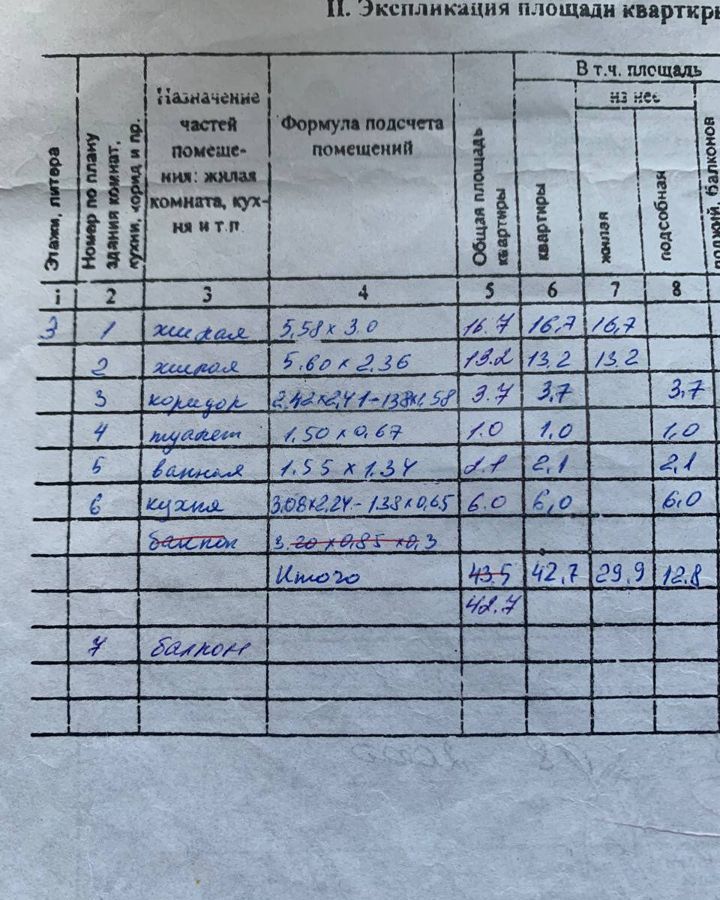 II. Экспликация площади квартиры
Этажи, литера
Номер по плану здания комнат, кухни, корид и пр.
Назначение частей помеще-
ния: жилая комната, кух-
ня и т.п
Формула подсчета помещений
Общая площадь квартиры
В т.ч. площадь
квартиры
из нее
жилая
подсобная
лоджий, балконов
1 2 3 4 5 6 7 8
3 1 жилая 5,58 х 3.0 16.7 16,7 16,7
2 жилая 5.60 х 2,36 13.2 13,2 13.2
3 коридор 2,42х2,41-138х1,58 3.7 3,7 3,7
4 туалет 1,50 х 0,67 1.0 1,0 1,0
5 ванная 1.55 х 1.34 2.1 2,1 2,1
6 кухня 3,08х2,24-1.38х0,65 6.0 6,0 6.0
балкон 3.20х0,85х0,3
Итого 43.5 42,7 29,9 12.8
42.7
7 балкон